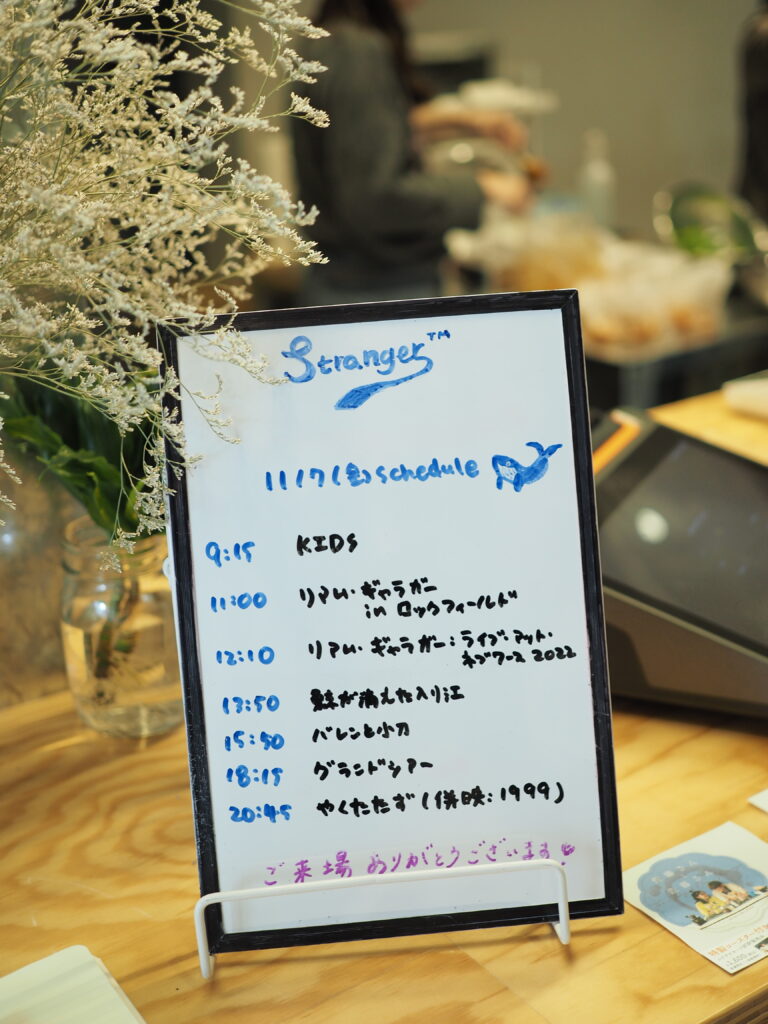 Stranger™
11/7(金)schedule
9:15 KIDS
11:00 リアム・ギャラガー
in ロックフィールド
12:10 リアム・ギャラガー:ライブ・アット・
ネブワース 2022
13:50 鯨が消えた入り江
15:50 バレンと小刀
18:15 グランドツアー
20:45 やくたたず(併映:1999)
ご来場 ありがとうございます